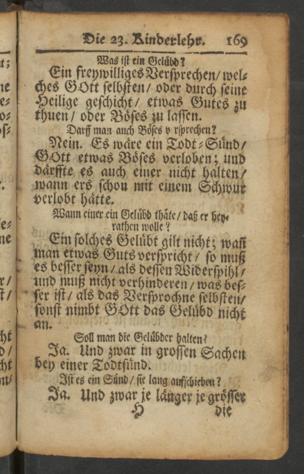 Die 23. Kinderlehr. 169
Was ist ein Gelübd?
Ein freywilliges Versprechen/ wel-
ches GOtt selbsten/ oder durch seine
Heilige geschicht/ etwas Gutes zu
thuen/ oder Böses zu lassen.
Darff man auch Böses v rsprechen?
Nein. Es wäre ein Todt-Sünd/
GOtt etwas Böses verloben; und
därffte es auch einer nicht halten/
wann ers schon mit einem Schwur
verlobt hätte.
Wann einer ein Gelübd thäte/ daß er hey-
rathen wolle?
Ein solches Gelübt gilt nicht; wañ
man etwas Guts verspricht/ so muß
es besser seyn/ als dessen Widerspihl/
und muß nicht verhinderen/ was bes-
ser ist/ als das Versprochne selbsten/
sonst nimbt GOtt das Gelübd nicht
an.
Soll man die Gelübder halten?
Ja. Und zwar in grossen Sachen
bey einer Todtsünd.
Ist es ein Sünd/ sie lang auffschieben?
Ja. Und zwar je länger je grösser
H die